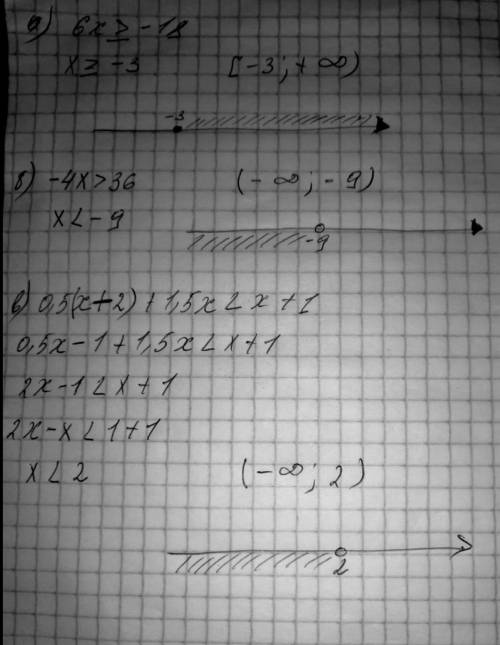 а) 6x ≥ -18
x ≥ -3 [-3; +∞)
-3
б) -4x > 36 (-∞; -9)
x < -9
-9
в) 0,5(x-2) + 1,5x < x + 1
0,5x - 1 + 1,5x < x + 1
2x - 1 < x + 1
2x - x < 1 + 1
x < 2 (-∞; 2)
2